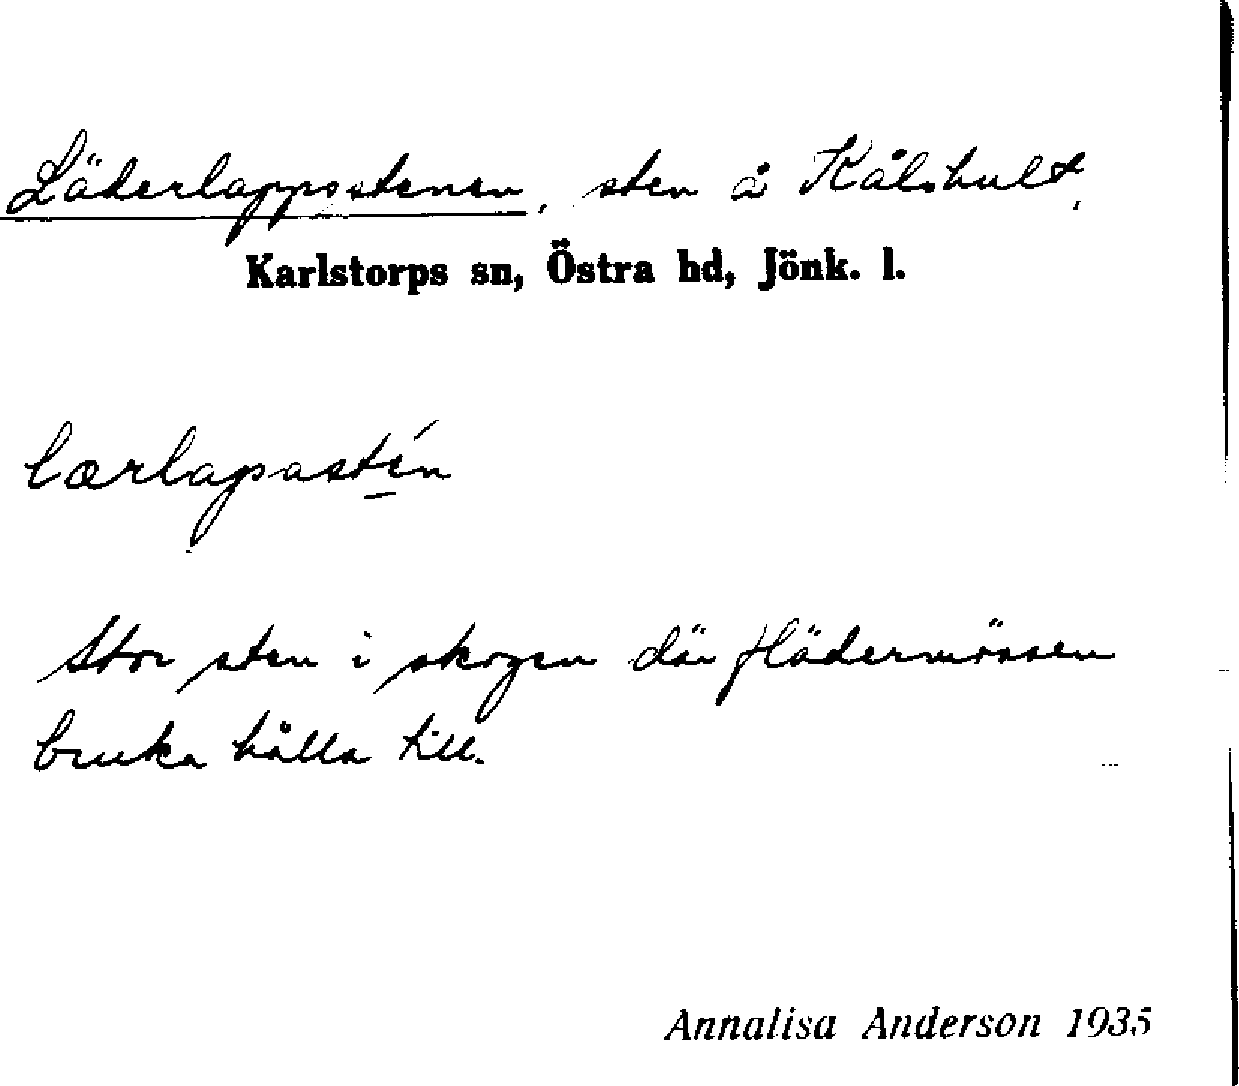 Läderlappsstenen, sten å Kålshult,
Karlstorps sn, Östra hd, Jönk. l.
lærlapastén
Stor sten i skogen där flädermössen
bruka hålla till.
Annalisa Anderson 1935